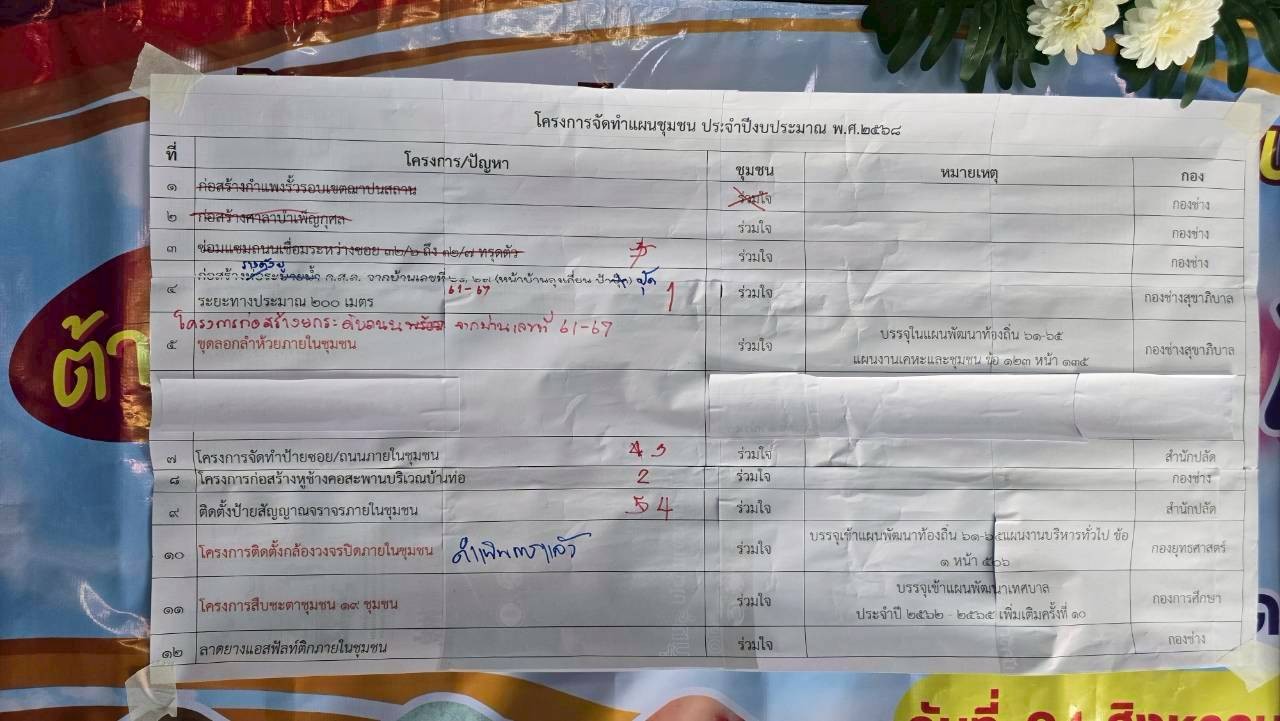 โครงการจัดทำแผนชุมชน ประจำปีงบประมาณ พ.ศ.๒๕๖๘
ที่ โครงการ/ปัญหา ชุมชน หมายเหตุ กอง
๑ ก่อสร้างกำแพงรั้วรอบเขตฌาปนสถาน ร่วมใจ กองช่าง
๒ ก่อสร้างศาลาบำเพ็ญกุศล ร่วมใจ กองช่าง
๓ ซ่อมแซมถนนเชื่อมระหว่างซอย ๓๒/๖ ถึง ๓๒/๗ ทรุดตัว ร่วมใจ กองช่าง
รางตัวยู
ก่อสร้างท่อระบายน้ำ ค.ส.ล. จากบ้านเลขที่ (หน้าบ้านลุงเถียน
61-67
๔ ระยะทางประมาณ ๒๐๐ เมตร 1 ร่วมใจ กองช่างสุขาภิบาล
โครงการก่อสร้างยกระดับถนน จากบ้านเลขที่ 61-67
๕ ขุดลอกลำห้วยภายในชุมชน ร่วมใจ บรรจุในแผนพัฒนาท้องถิ่น ๖๑-๖๕ กองช่างสุขาภิบาล
แผนงานเคหะและชุมชน ข้อ ๑๒๓ หน้า ๑๓๕
๗ โครงการจัดทำป้ายซอย/ถนนภายในชุมชน 4 3 ร่วมใจ สำนักปลัด
๘ โครงการก่อสร้างหูช้างคอสะพานบริเวณบ้านท่อ 2 ร่วมใจ กองช่าง
๙ ติดตั้งป้ายสัญญาณจราจรภายในชุมชน 5 4 ร่วมใจ สำนักปลัด
๑๐ โครงการติดตั้งกล้องวงจรปิดภายในชุมชน ดำเนินการแล้ว ร่วมใจ บรรจุเข้าแผนพัฒนาท้องถิ่น ๖๑-๖๕แผนงานบริหารทั่วไป ข้อ กองยุทธศาสตร์
๑ หน้า ๕๐๖
๑๑ โครงการสืบชะตาชุมชน ๑๙ ชุมชน ร่วมใจ บรรจุเข้าแผนพัฒนาเทศบาล กองการศึกษา
ประจำปี ๒๕๖๒ - ๒๕๖๕ เพิ่มเติมครั้งที่ ๑๐
๑๒ ลาดยางแอสฟัลท์ติกภายในชุมชน ร่วมใจ กองช่าง
ต้า